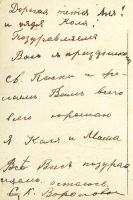 Дорогая тётя Аня!
и дядя Коля!
Поздравляем
Вас с праздником
Св. Пасхи и же-
лаем Вам всего
всего хорошаго
Я Коля и Маша
Всѣ Васъ поздрав